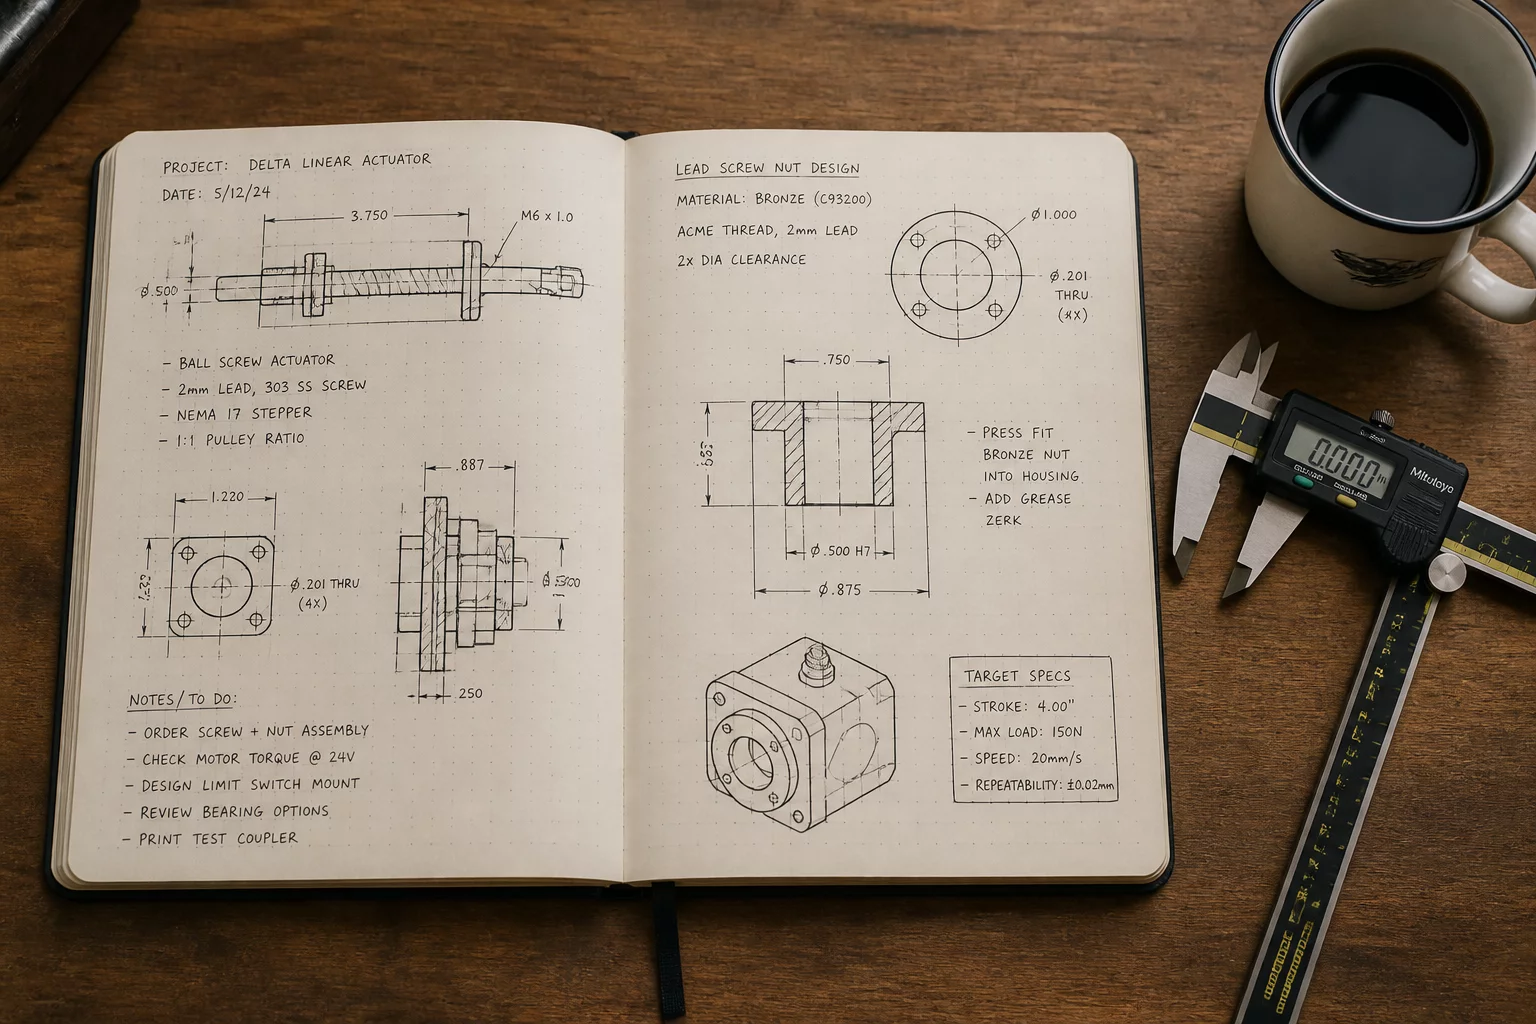 PROJECT: DELTA LINEAR ACTUATOR
DATE: 5/12/24
3.750
M6 x 1.0
Ø.500
- BALL SCREW ACTUATOR
- 2mm LEAD, 303 SS SCREW
- NEMA 17 STEPPER
- 1:1 PULLEY RATIO
.887
1.220
Ø.201 THRU
(4X)
.250
NOTES/TO DO:
- ORDER SCREW + NUT ASSEMBLY
- CHECK MOTOR TORQUE @ 24V
- DESIGN LIMIT SWITCH MOUNT
- REVIEW BEARING OPTIONS
- PRINT TEST COUPLER
LEAD SCREW NUT DESIGN
MATERIAL: BRONZE (C93200)
ACME THREAD, 2mm LEAD
2x DIA CLEARANCE
Ø1.000
Ø.201
THRU
.750
- PRESS FIT
BRONZE NUT
INTO HOUSING
- ADD GREASE
ZERK
Ø.500 H7
Ø.875
TARGET SPECS
- STROKE: 4.00"
- MAX LOAD: 150N
- SPEED: 20mm/s
- REPEATABILITY: ±0.02mm
0.000
Mitutoyo